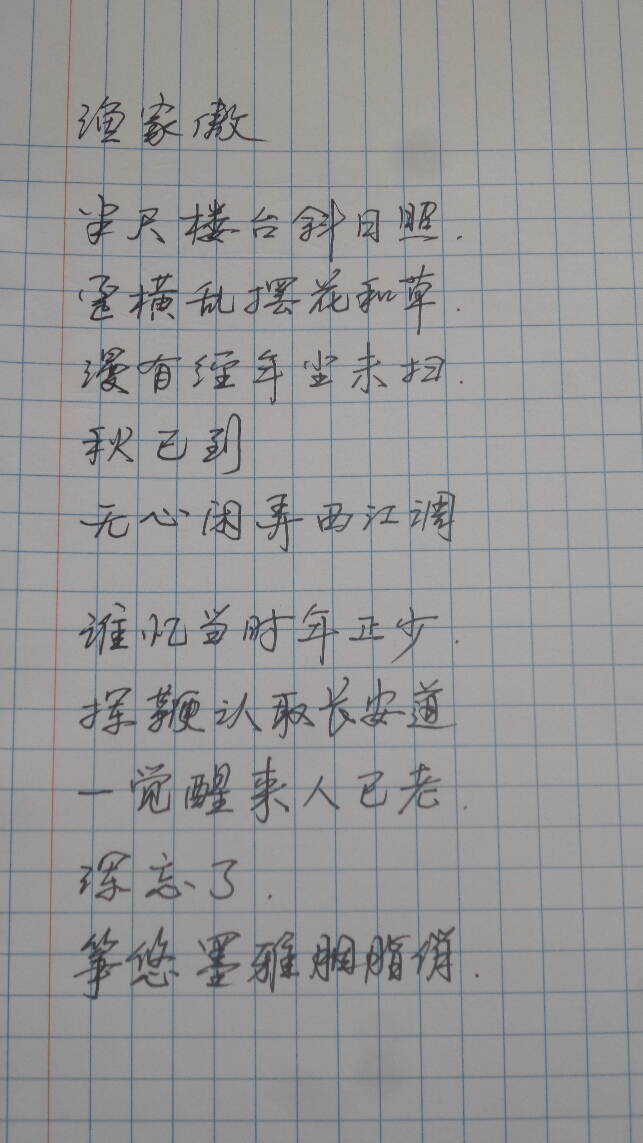 渔家傲
半尺楼台斜日照.
竖横乱摆花和草.
漫有经年尘未扫.
秋已到
无心闲弄西江调
谁忆当时年正少.
挥鞭认取长安道
一觉醒来人已老.
浑忘了.
筝悠墨雅胭脂俏.